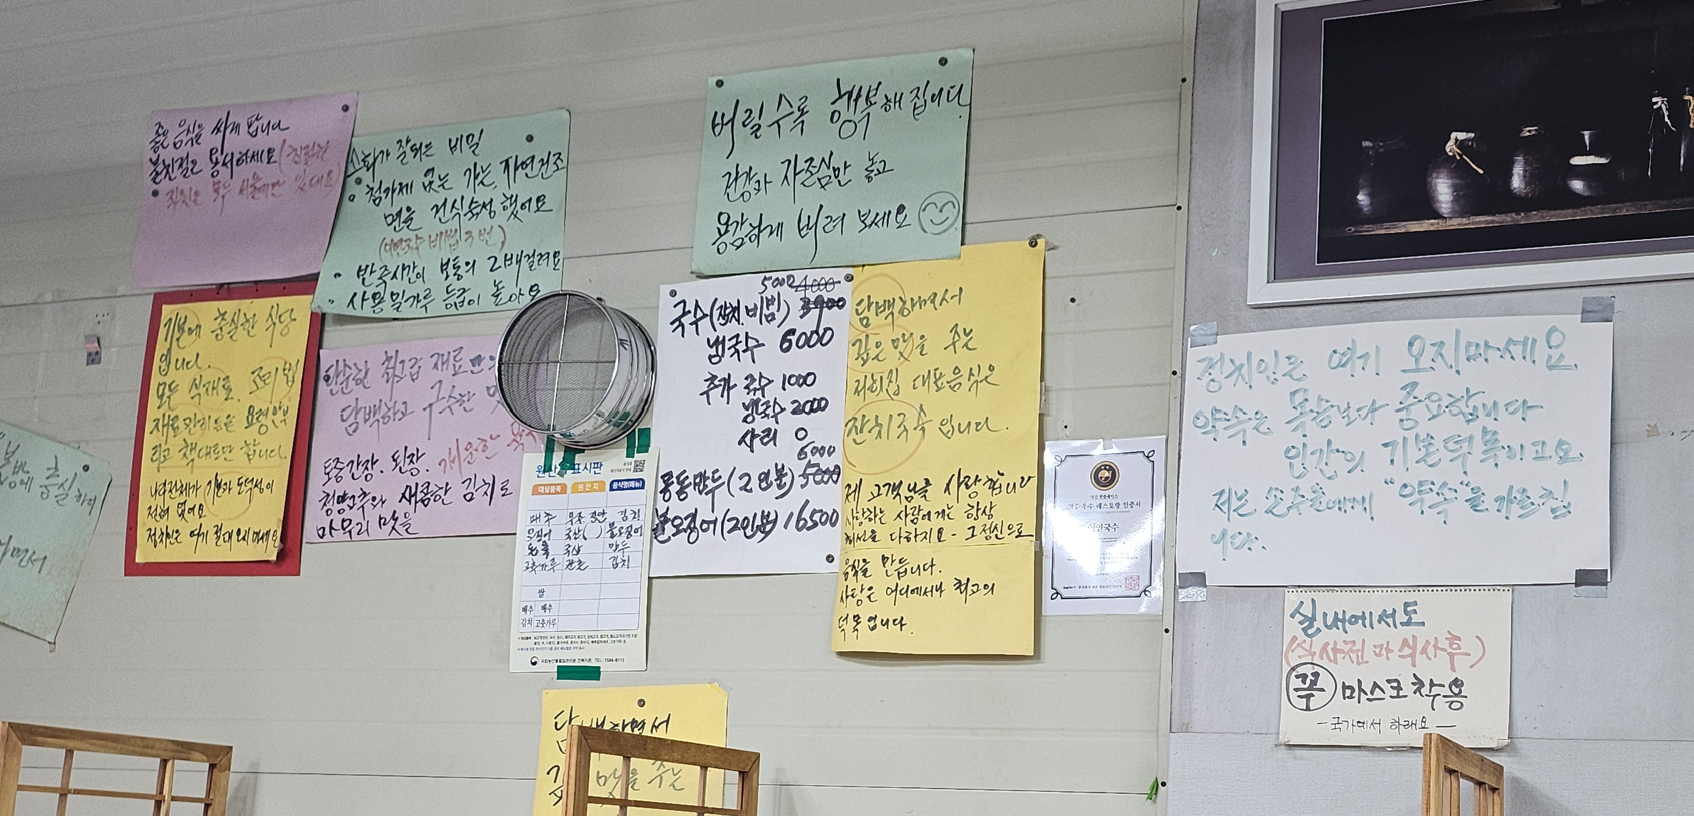 좋은 음식을 싸게 팝니다
불친절은 용서하세요 (친절한
직원은 모두 서울에만 있대요)
소화가 잘되는 비밀
• 첨가제 없는 가는 자연건조
면을 건식숙성 했어요
(대면장수 비법 3번)
• 반죽시간이 보통의 2배 걸려요
• 사용 밀가루 등급이 높아요
버릴수록 행복해집니다
건강과 자존심만 놓고
용감하게 버려 보세요
기본에 충실한 식당
입니다.
모두 식재료, 조리법
재료관리등은 요령안부
리고 책대로만 합니다.
나라전체가 기본과 도덕성이
전혀 없어요
정치인은 여기 절대 오지마세요
단순한 최고급 재료
담백하고 구수한
토종간장, 된장, 개운한
청양고추와 새콤한 김치로
마무리 맛을
5000 4000
국수(잔치.비빔) 3900
냉국수 6000
추가 국수 1000
냉국수 2000
사리 0
6000
몽동만두 (2인분) 5000
불오징어 (2인분) 16500
담백하면서
깊은 맛을 주는
저희집 대표음식은
잔치국수 입니다.
제 고객님을 사랑합니다
사랑하는 사람에게는 항상
최선을 다하지요 - 그정신으로
음식을 만듭니다.
사랑은 어디에서나 최고의
덕목입니다.
원산지표시판
대상품목 원산지 음식명(메뉴)
배추 김치
오징어 불오징어
국산 만두
고춧가루 김치
쌀
배추 배추
김치 고춧가루
정치인은 여기 오지마세요
약속은 목숨보다 중요합니다
인간의 기본덕목이고요
저는 손주들에게 "약속"을 가르칩
니다.
실내에서도
(식사전과 식사후)
꾹 마스크 착용
- 국가에서 하래요 -
충실하며
하면서
담백하면서
깊 맛을 주는